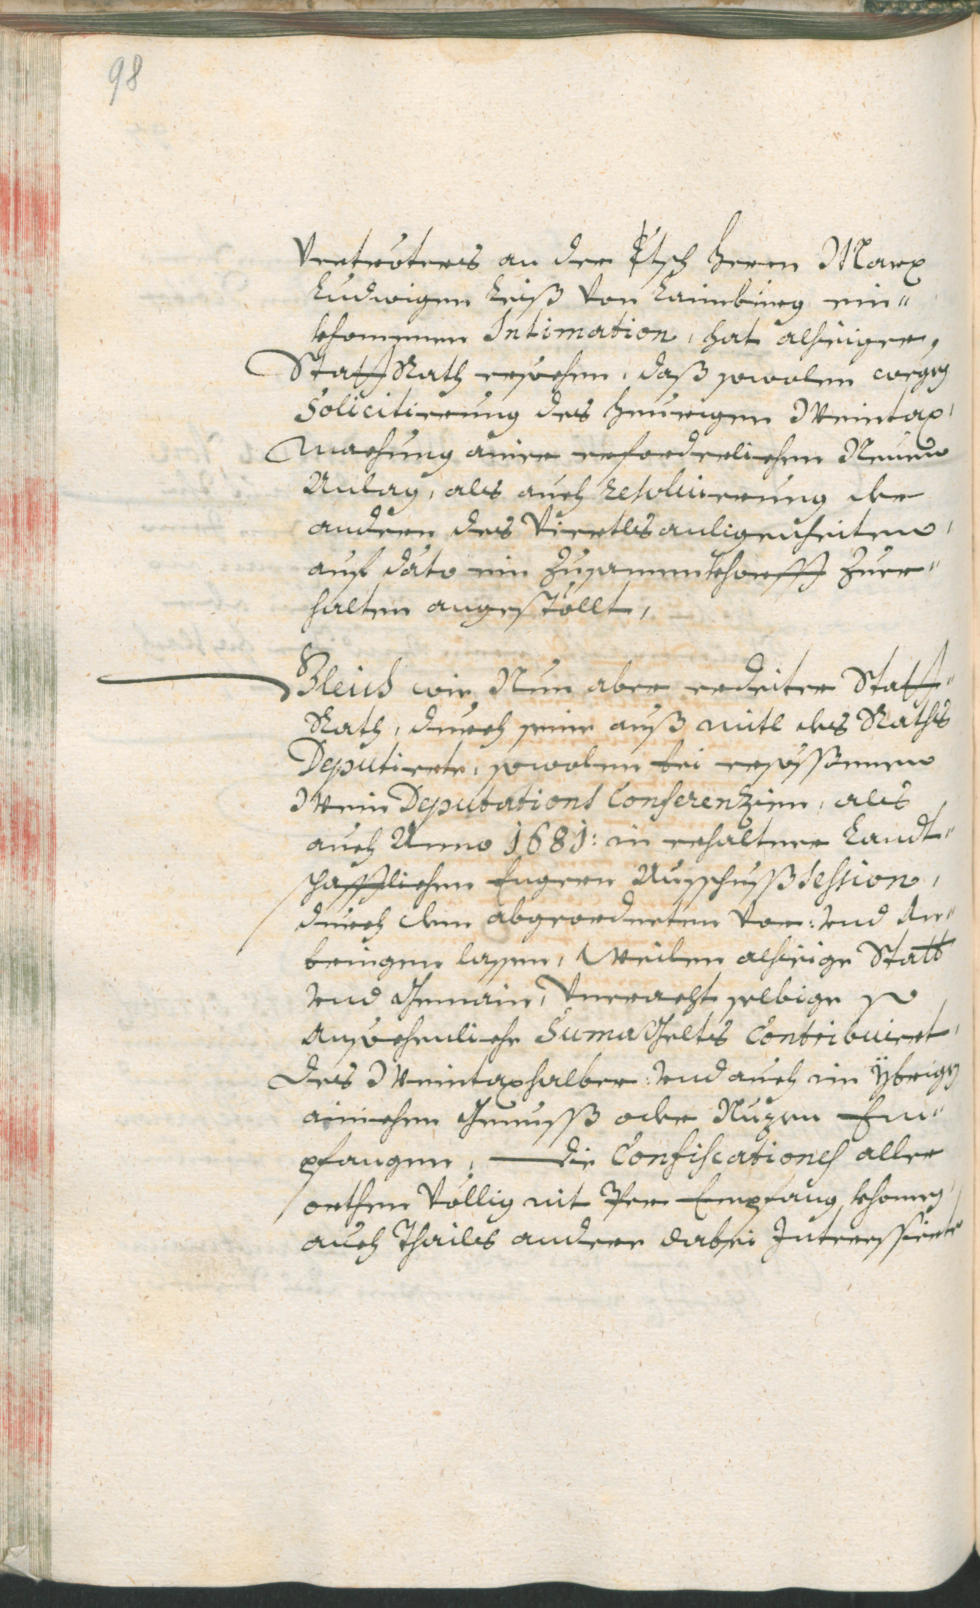 98
Vertröters an der Etsch Herrn Marx
Ludwigen Leiß von Laimburg ein"
khommnen Intimation, hat alhieiger,
Statt Rath ersehen, daß sowolen wegen
Solicitierung des heurigen Weintax,
machung ainer erforderlichen Neuen
Anlag, als auch resoluierung der
andern des Viertls anligenheiten,
auf dato ein Zusammenkhonfft zuer"
halten angestöllt,
Gleich wie Nun aber erdeiter Statt"
Rath, durch seine auß mitl des Raths
Deputierte, sowolen bei
Wein Deputations Conferenzien, als
auch Anno 1681: in erhaltner Landt"
schafftlichen Engern Ausschuß session,
durch den abgeordneten Vor: vnd An"
bringen lassen, Weilen alhieige Statt
vnd Gemain, Vneracht selbige so
Ansechenliche Suma Gelts Contribuiert,
des Weintaxhalber: vnd auch im Ÿbrigen
ainichen Genuss oder Nuzen Em"
pfangen, die Confiscationes aller
orthen Völlig nit Per Empfang khomen,
auch Thails andere dabei Interessierte